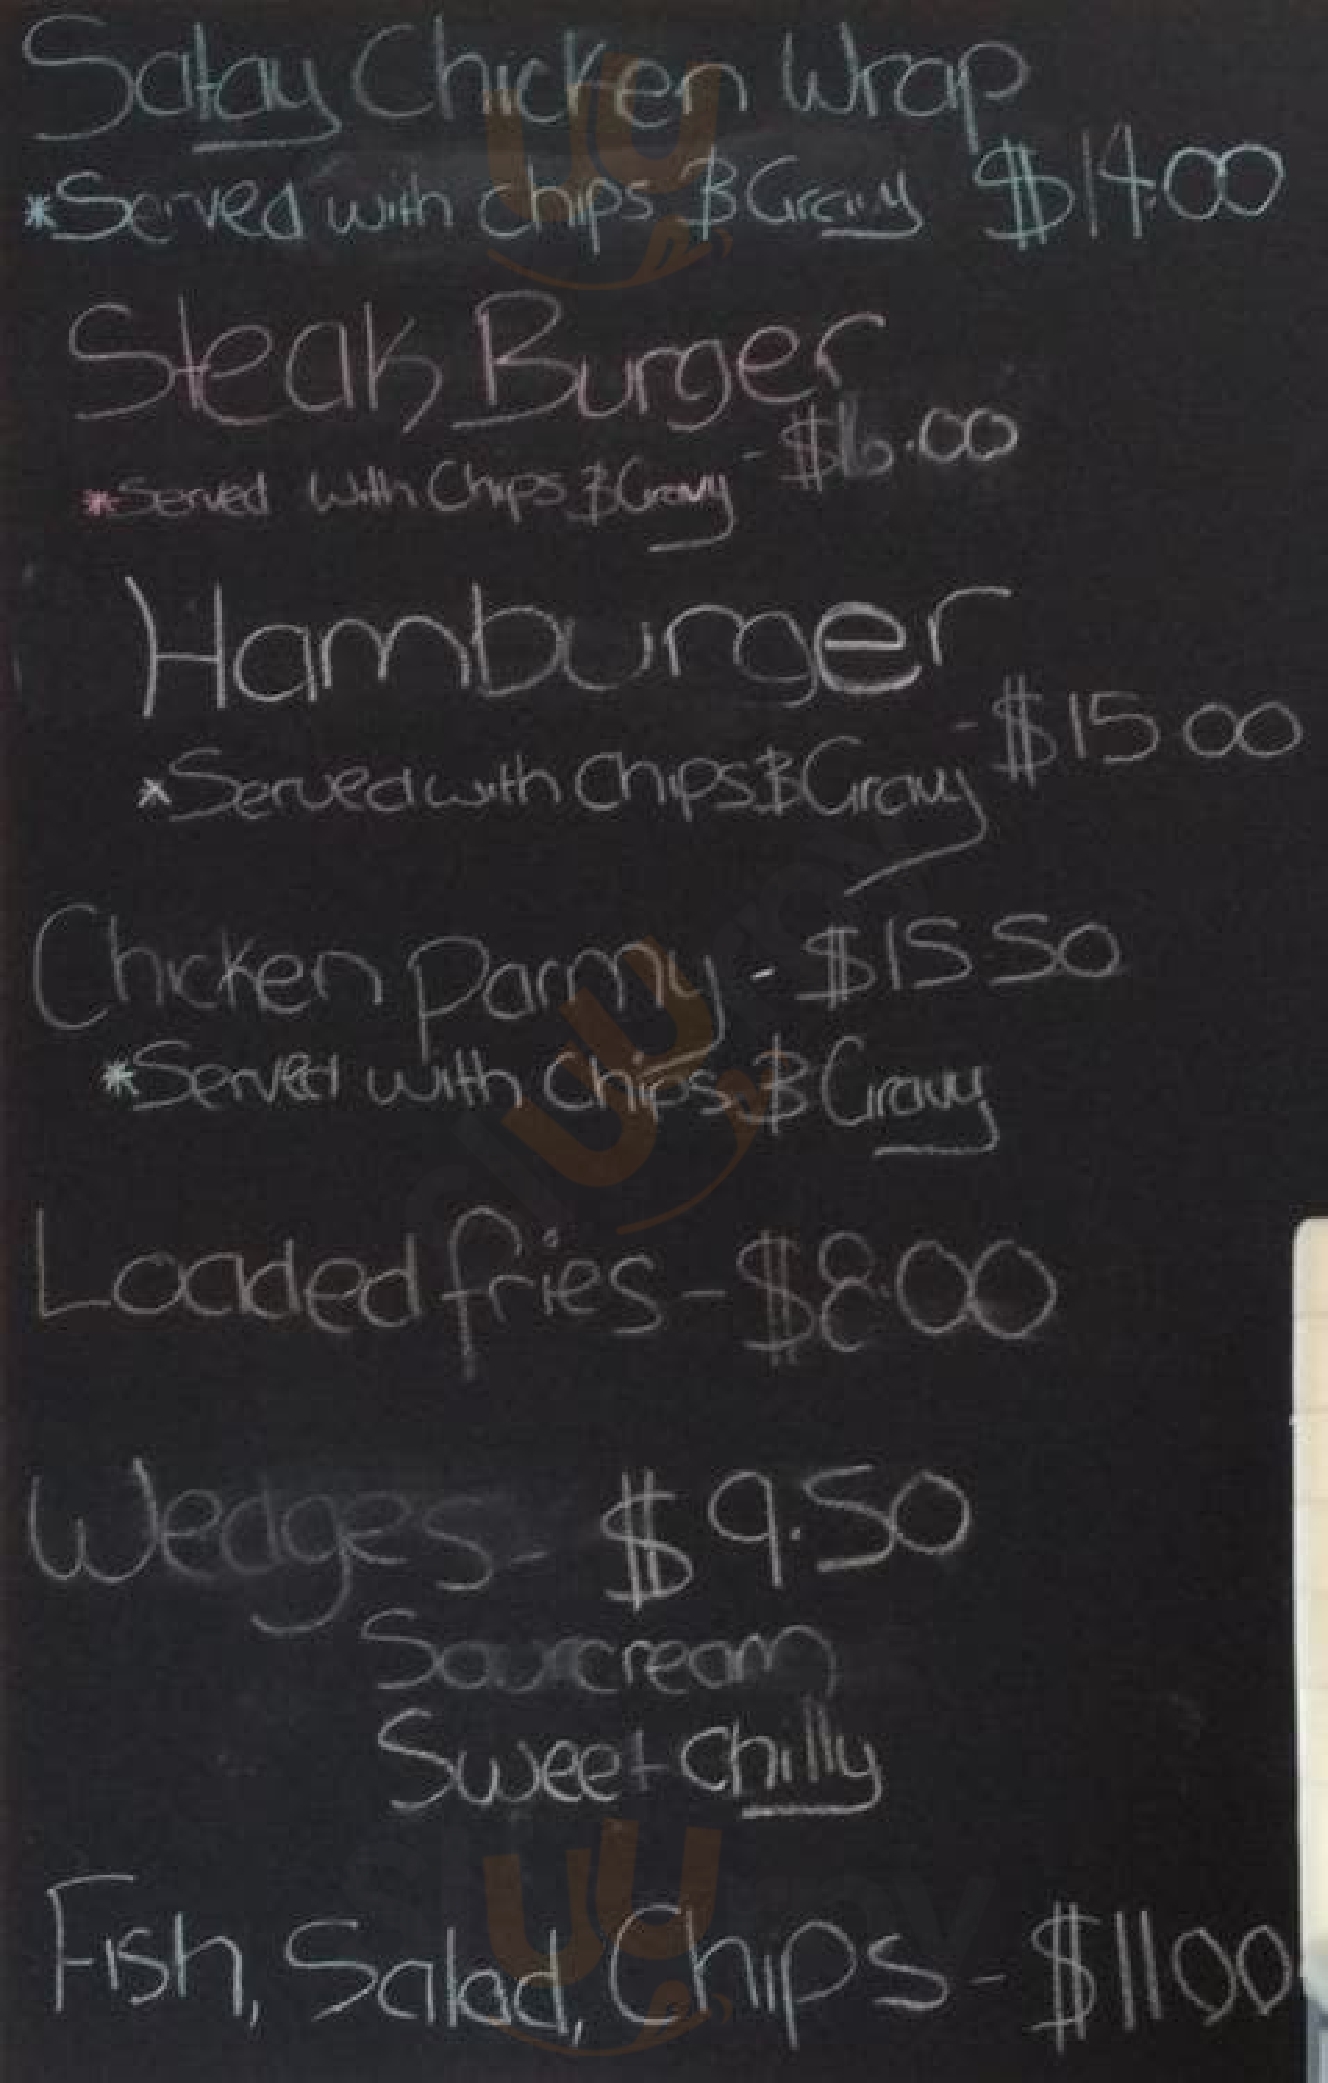 Satay Chicken Wrap
*Served with chips & Gravy $14.00
Steak Burger
*Served with Chips & Gravy - $16.00
Hamburger
*Served with Chips & Gravy - $15.00
Chicken parmy - $15.50
*Served with Chips & Gravy
Loaded fries - $8.00
Wedges - $9.50
Sourcream
Sweet Chilly
Fish, Salad, Chips - $11.00